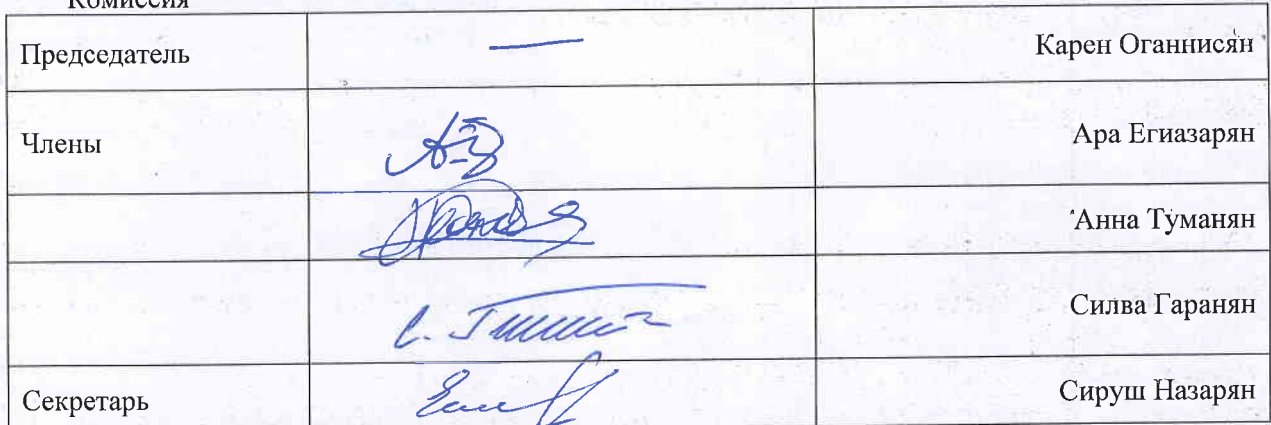 Комиссия
Председатель — Карен Оганнисян
Члены Ара Егиазарян
Анна Туманян
Силва Гаранян
Секретарь Сируш Назарян